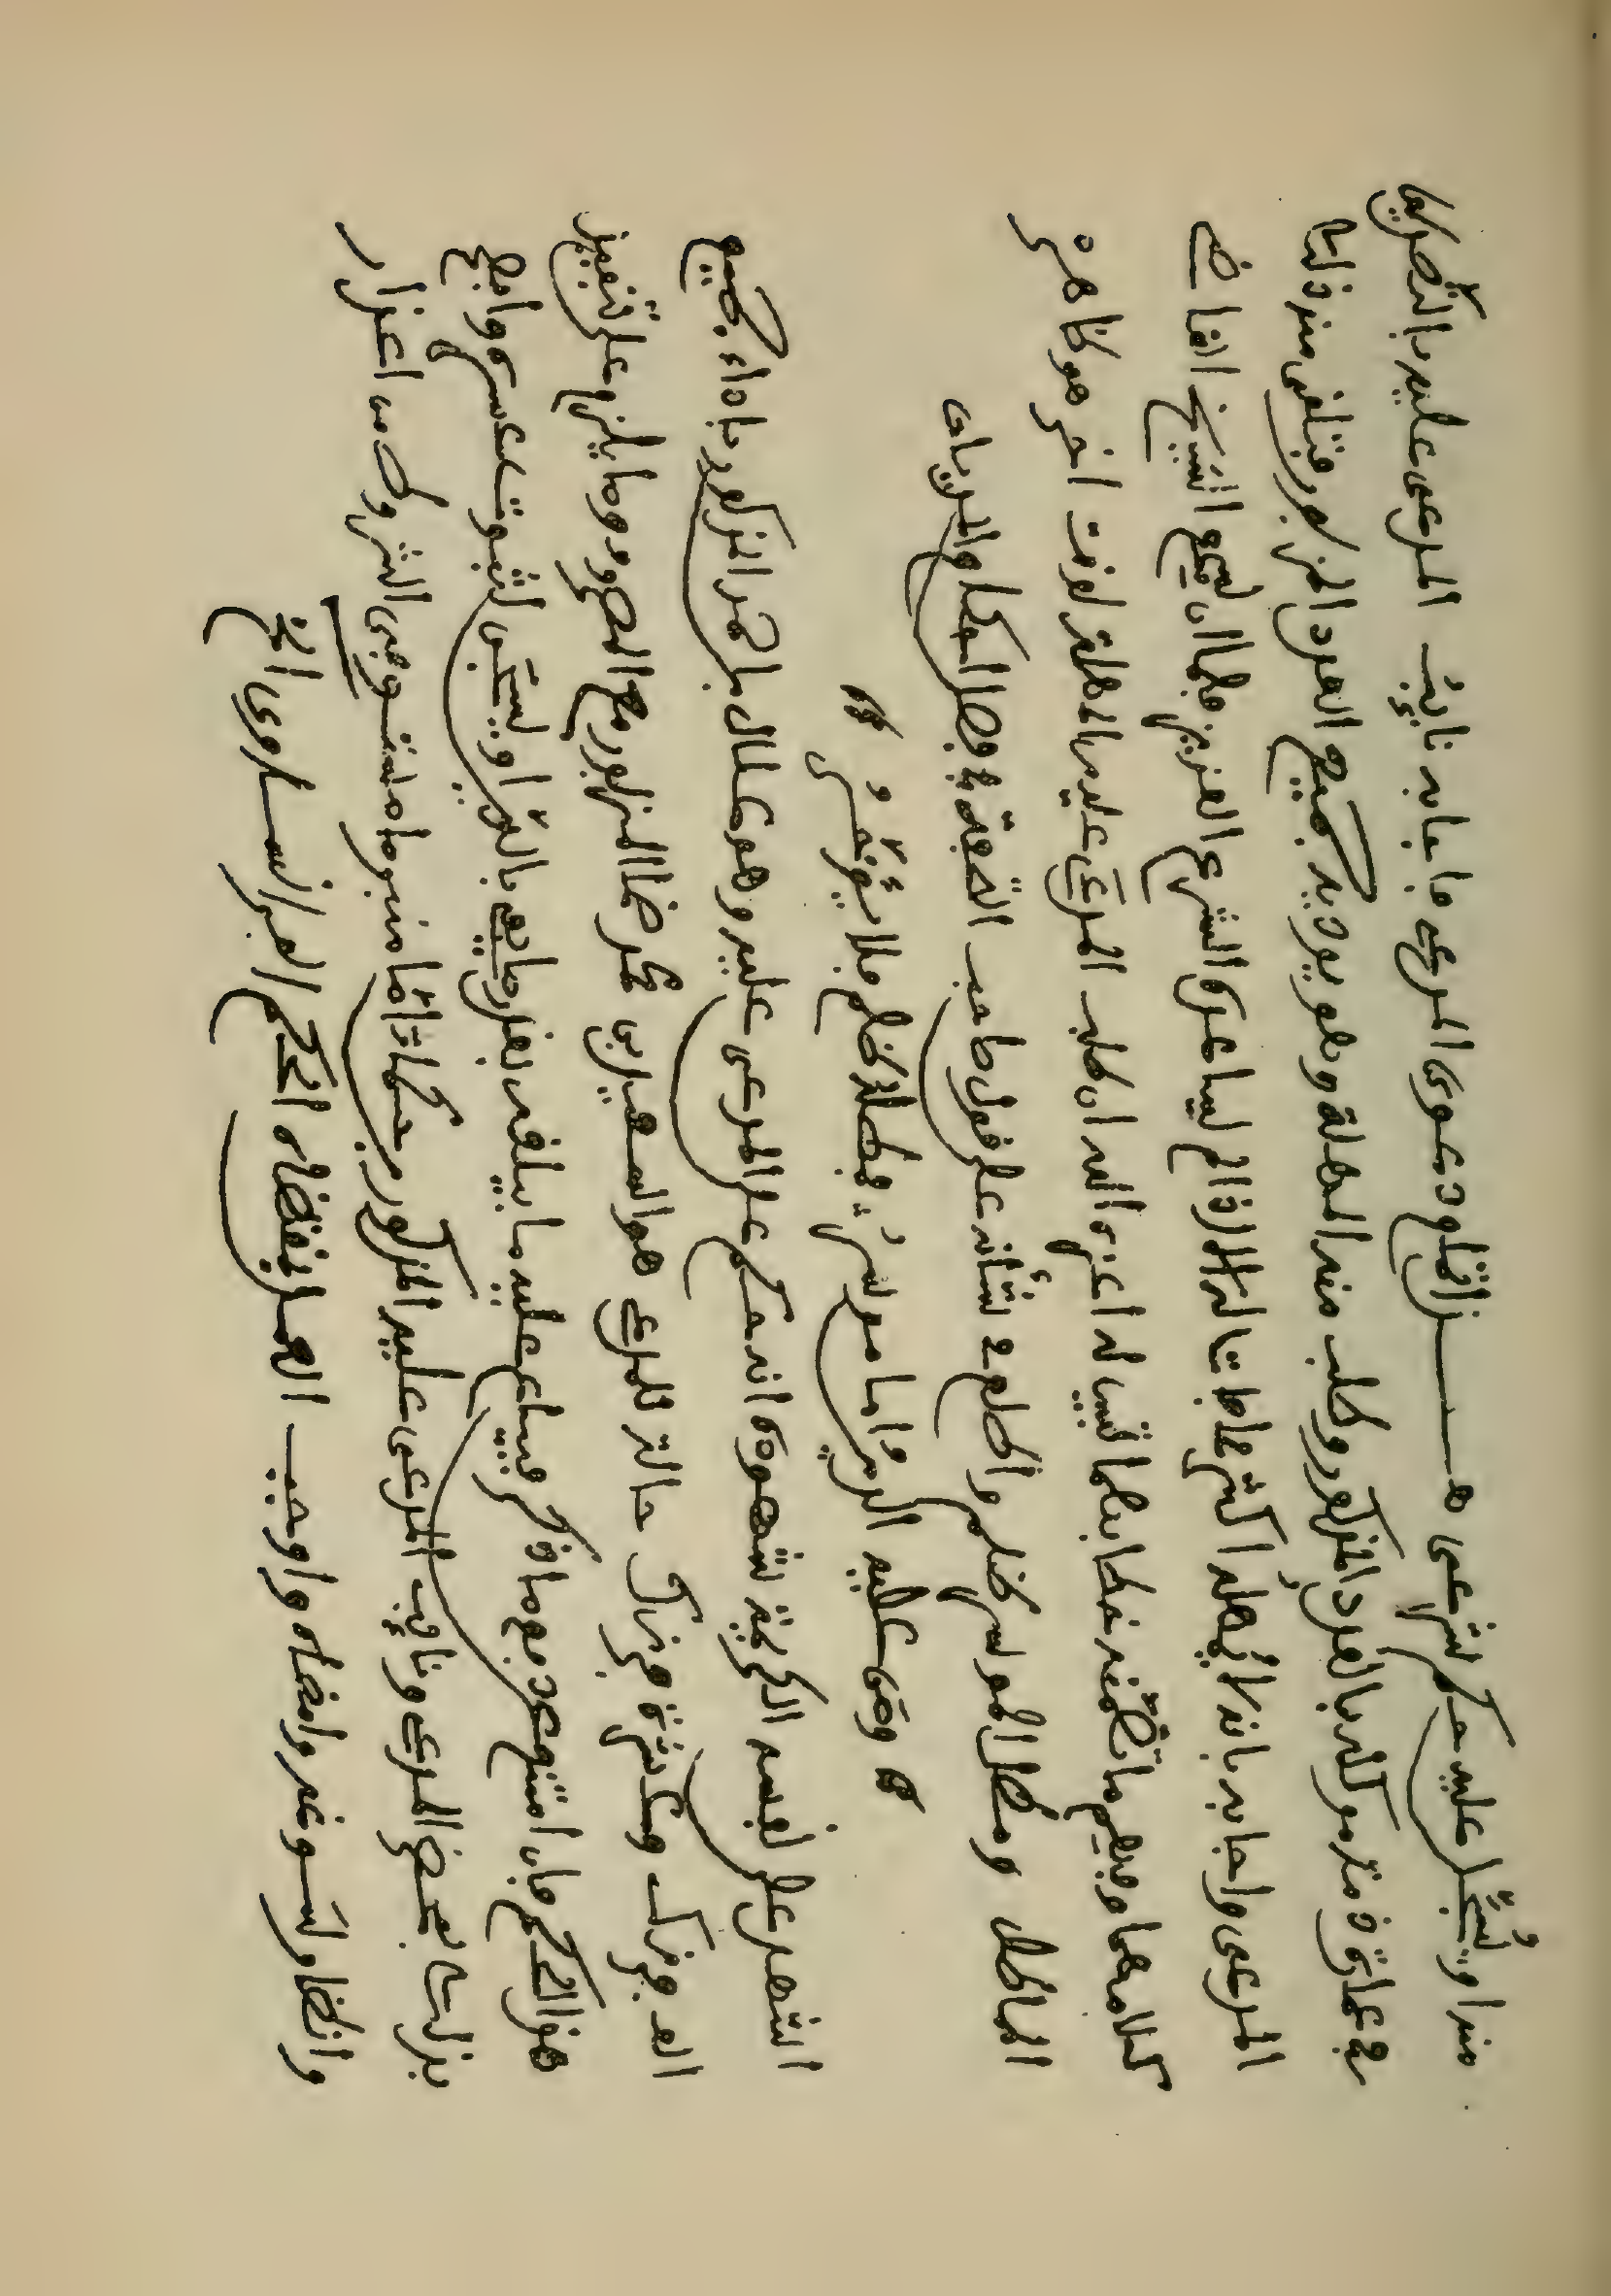 منه او يُسجّل عليه حكم شرعى هــذا دعوى المدعى فاجابه نايب المدعى عليه
فى عمارة ذمة موكله بالعدد المذكور وطلب منه المهلة ولو يوديه جميع العدد المذكور فتلقى منه ذلك
المدعى واجابه بانه لا يمهله اكثر مما جات له الا اذا لم يساعده الشرع العزيز فلما ان سمع الشيخ القاضى
كلامهما وفهم ما تضمّنه خطابهما تبين له اعزه الله ان طلب المدعى عليه المهلة لوقت اخر هو
المماطل ومطل الموسر ظلم واطلع فى شأنه على قول صاحب التحفة فى فصل المطل والمديان
ومن عليه الدين اما موسرُ فمطله ظلم فلا يؤخّرُ
اشهد على نفسه الكريمة شهوده انه حكم على المدعى عليه وهو علال بن احمد المذكور باداء جميع
العدد للمدعى هو السعيد بن محمد المذكور مع وما يلزم على تنفيذ
هذا الحكم فان امتنع من دفع ما ذكر فيباع عليه ما يلفى او يسجن لثبوت عسره
بذلك بمحضر المدعى ونايب المدعى عليه المذكور حكما تامّا منبرما مستوفى الشروط من اعذار
وانظار وتسويغه وامضاه واوجب العمل بمقتضاه الحكم الخ